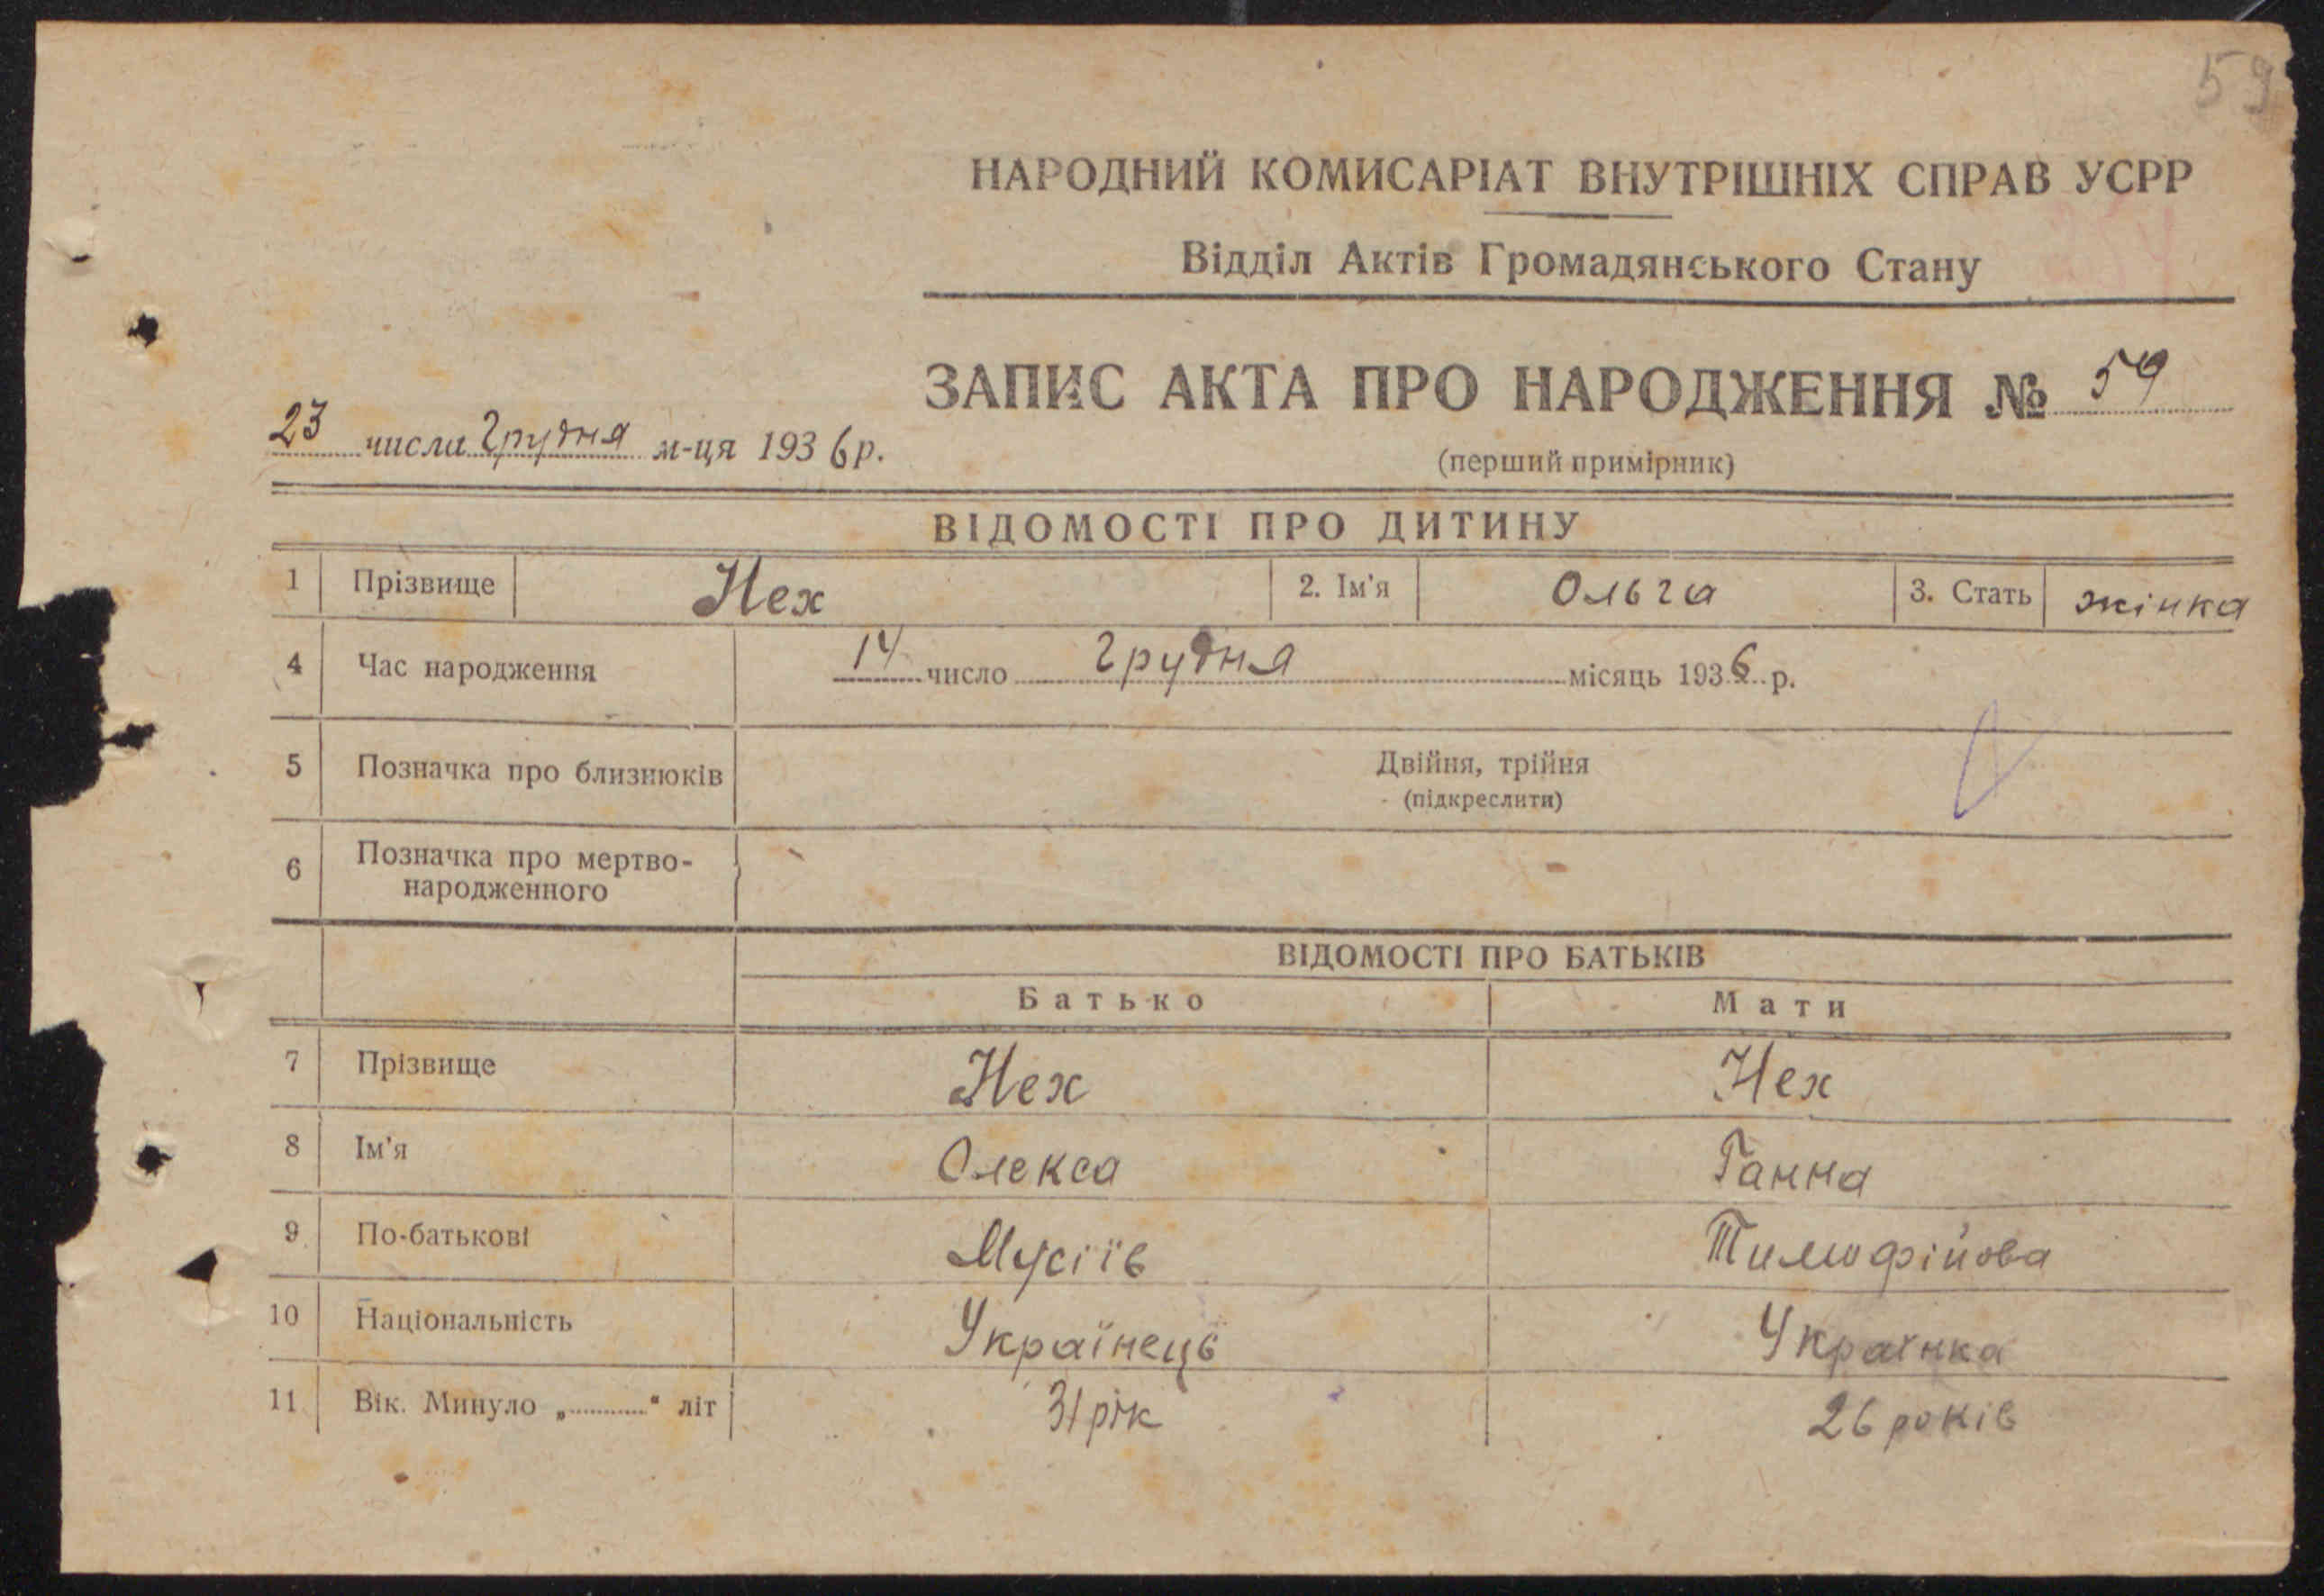 59
НАРОДНИЙ КОМИСАРІАТ ВНУТРІШНІХ СПРАВ УСРР
Відділ Актів Громадянського Стану
ЗАПИС АКТА ПРО НАРОДЖЕННЯ № 59
23 числа Грудня м-ця 1936 р.
(перший примірник)
ВІДОМОСТІ ПРО ДИТИНУ
1 Прізвище Нех 2. Ім'я Ольга 3. Стать жінка
4 Час народження 14 число Грудня місяць 1936 р.
5 Позначка про близнюків Двійня, трійня
(підкреслити)
6 Позначка про мертво-
народженного
ВІДОМОСТІ ПРО БАТЬКІВ
Батько Мати
7 Прізвище Нех Нех
8 Ім'я Олекса Ганна
9 По-батькові Мусіїв Тимофійова
10 Національність Українець Українка
11 Вік. Минуло „..........“ літ 31 рік 26 років